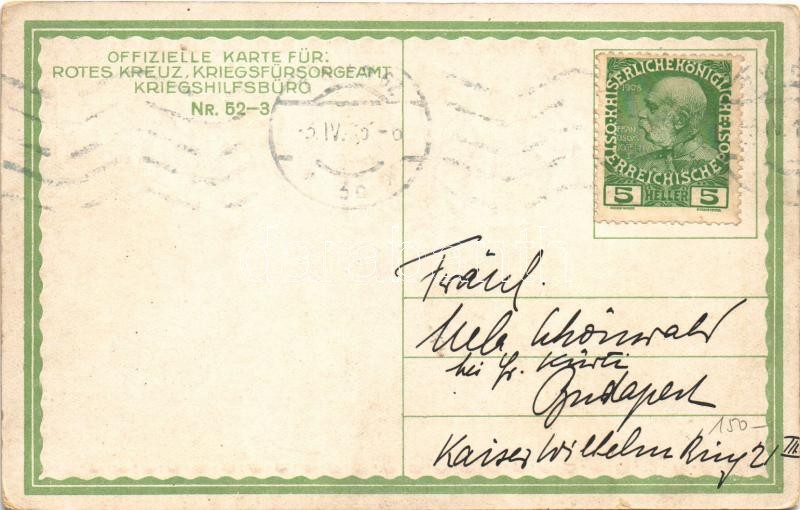 OFFIZIELLE KARTE FÜR:
ROTES KREUZ, KRIEGSFÜRSORGEAMT
KRIEGSHILFSBÜRO
NR. 52-3
IV
KAISERLICHEKÖNIGLICHE ÖSTERREICHISCHE
1908
5 HELLER 5
Fräul.
Mela Schönwald
bei Fr. Kürti
Budapest
150-
Kaiser Wilhelm Ring 21 III.